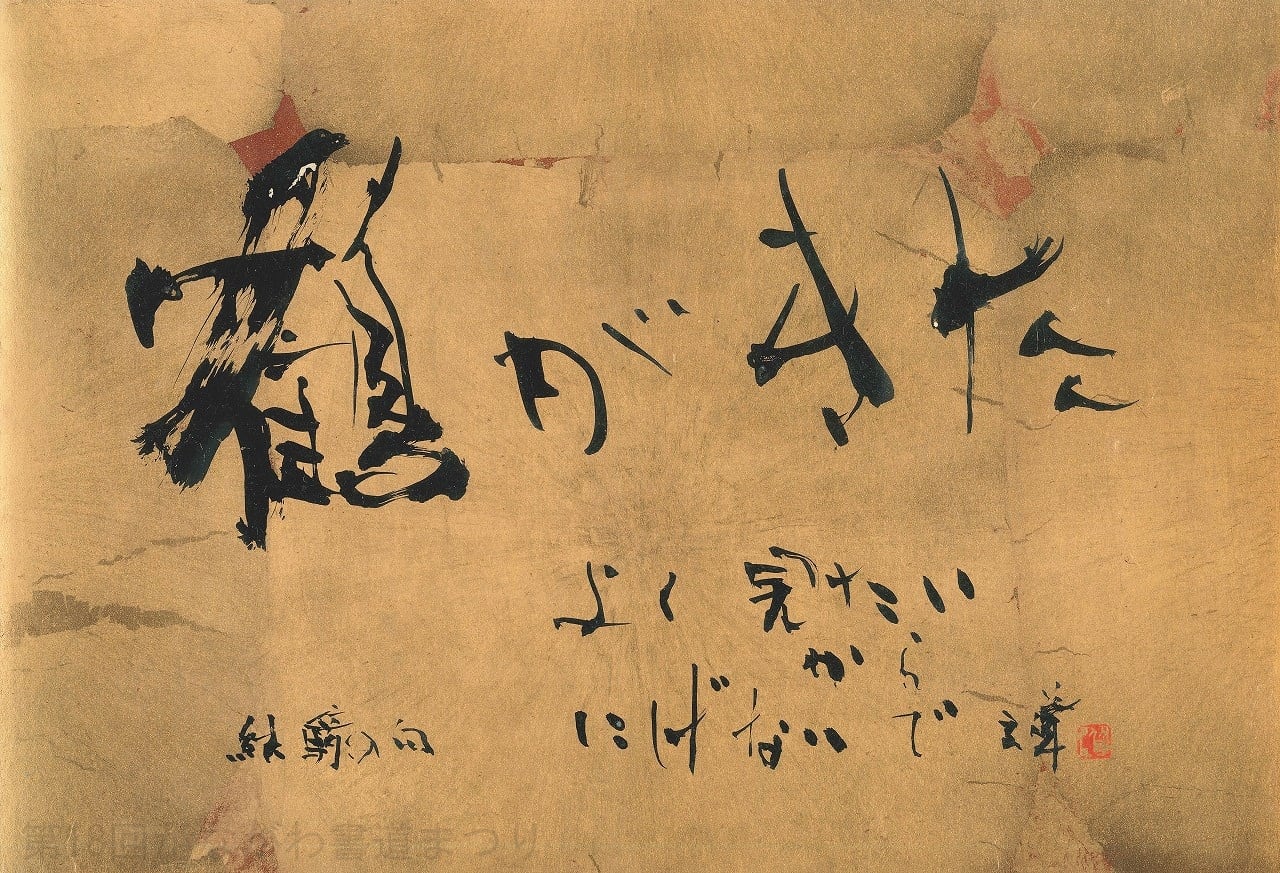 鶴がきた
よく見たい
から
にげないで
第18回かながわ書道まつり